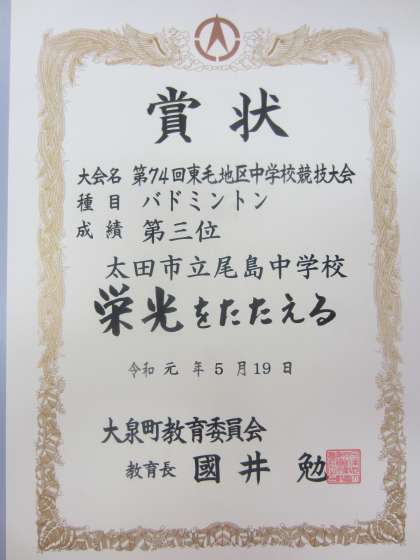 賞状
大会名 第74回東毛地区中学校競技大会
種目 バドミントン
成績 第三位
太田市立尾島中学校
栄光をたたえる
令和元年5月19日
大泉町教育委員会
教育長 國井 勉